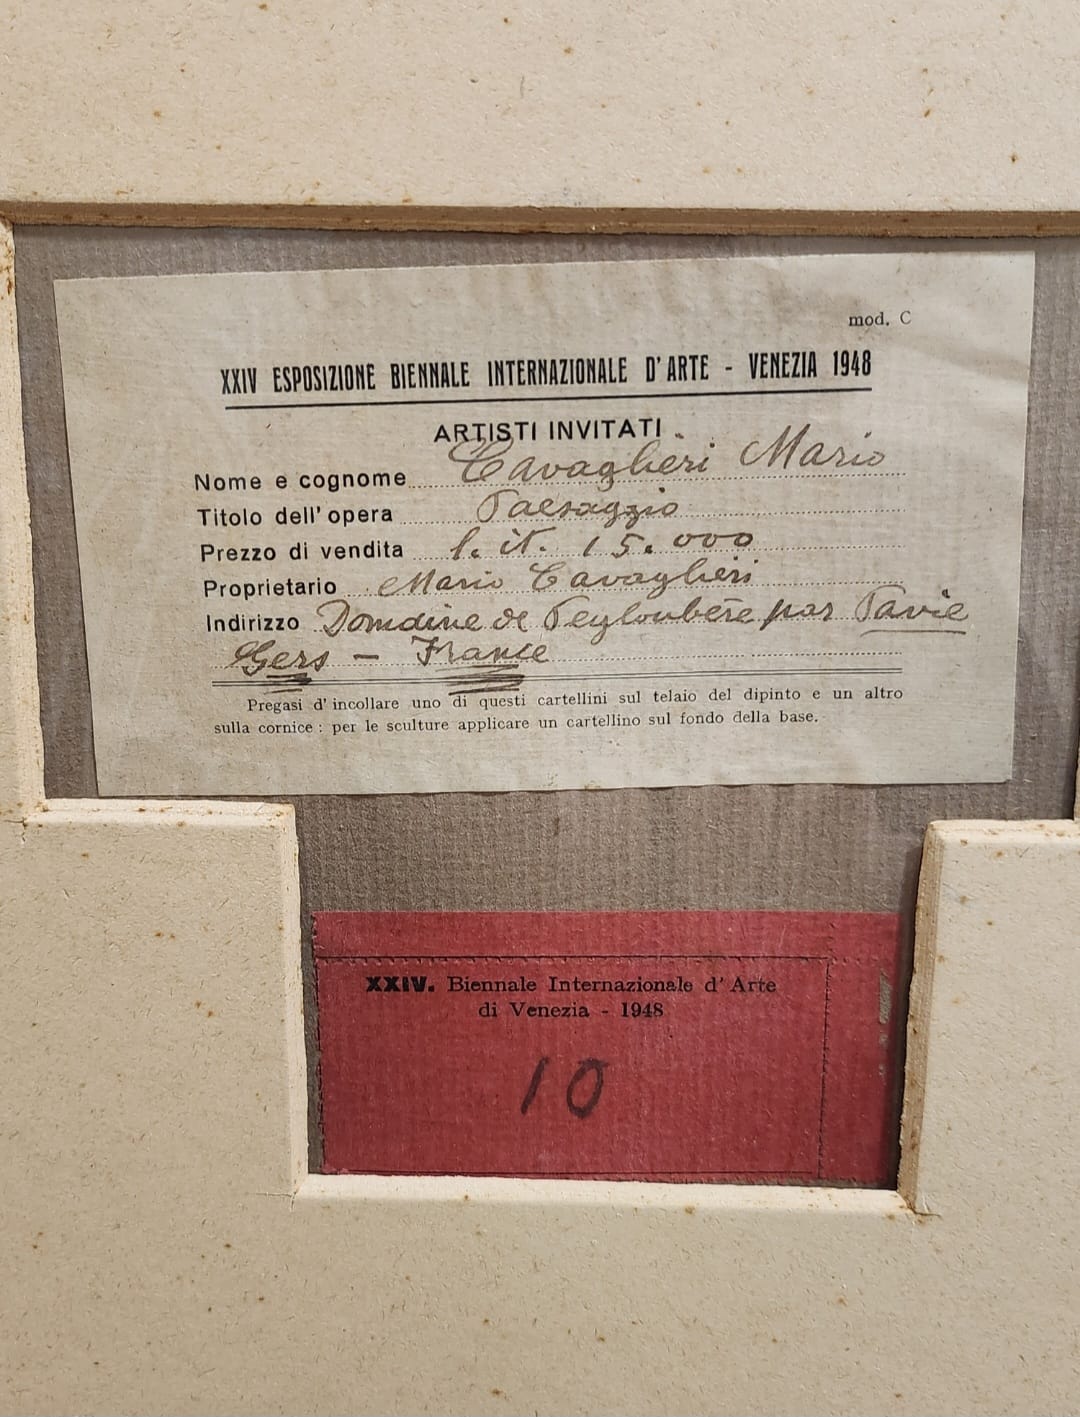 mod. C
XXIV ESPOSIZIONE BIENNALE INTERNAZIONALE D'ARTE - VENEZIA 1948
ARTISTI INVITATI
Nome e cognome Cavaglieri Mario
Titolo dell'opera Paesaggio
Prezzo di vendita l. it. 15.000
Proprietario Mario Cavaglieri
Indirizzo Domaine de Peyloubère par Pavie
Gers - France
Pregasi d'incollare uno di questi cartellini sul telaio del dipinto e un altro
sulla cornice : per le sculture applicare un cartellino sul fondo della base.
XXIV. Biennale Internazionale d'Arte
di Venezia - 1948
10